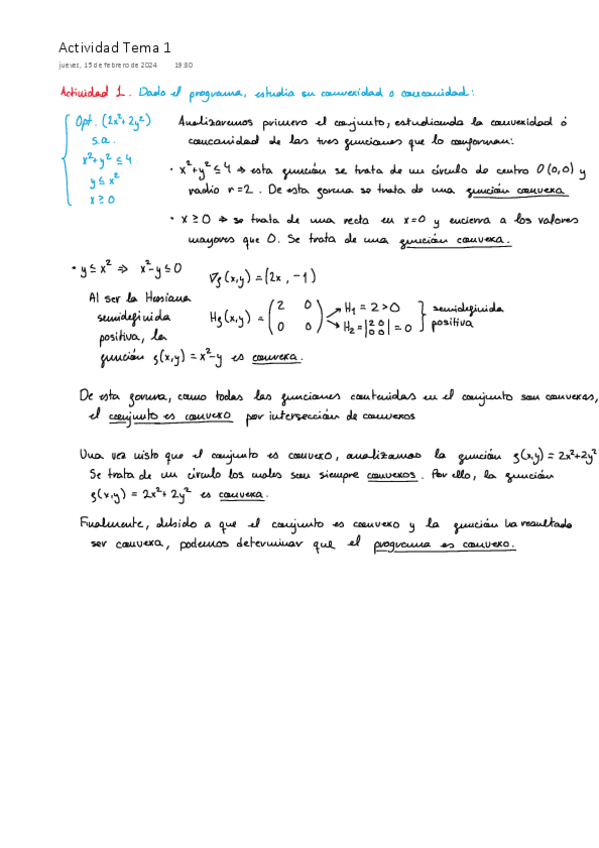 Actividad Tema 1
jueves, 15 de febrero de 2024 19:30
Actividad 1. Dado el programa, estudia su convexidad o concavidad:
Opt. (2x²+2y²)
s.a.
x²+y² ≤ 4
y ≤ x²
x ≥ 0
Analizaremos primero el conjunto, estudiando la convexidad ó
concavidad de las tres funciones que lo conforman:
· x²+y² ≤ 4 ⇒ esta función se trata de un círculo de centro O(0,0) y
radio r=2. De esta forma se trata de una función convexa
· x ≥ 0 ⇒ se trata de una recta en x=0 y encierra a los valores
mayores que 0. Se trata de una función convexa.
· y ≤ x² ⇒ x²-y ≤ 0
∇f(x,y) = (2x, -1)
Al ser la Hessiana
semidefinida
positiva, la
función f(x,y) = x²-y es convexa.
Hf(x,y) = (2 0
0 0)
H₁ = 2 > 0
H₂ = |2 0
0 0| = 0
semidefinida
positiva
De esta forma, como todas las funciones contenidas en el conjunto son convexas,
el conjunto es convexo por intersección de convexos
Una vez visto que el conjunto es convexo, analizamos la función f(x,y) = 2x²+2y²
Se trata de un círculo los cuales son siempre convexos. Por ello, la función
f(x,y) = 2x²+2y² es convexa.
Finalmente, debido a que el conjunto es convexo y la función ha resultado
ser convexa, podemos determinar que el programa es convexo.